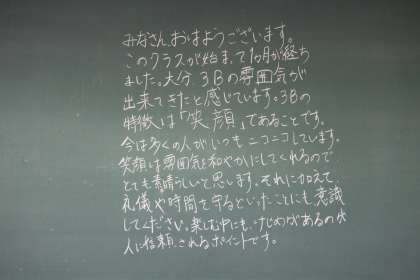 みなさん、おはようございます。
このクラスが始まって1ヶ月が経ち
ました。大分3Bの雰囲気が
出来てきたと感じています。3Bの
特徴は「笑顔」であることです。
今は多くの人がいつもニコニコしています。
笑顔は雰囲気を和やかにしてくれるので
とても素晴らしいと思います。それに加えて、
礼儀や時間を守るといったことにも意識
してください。楽しむ中にも、けじめがあるのが
人に信頼されるポイントです。